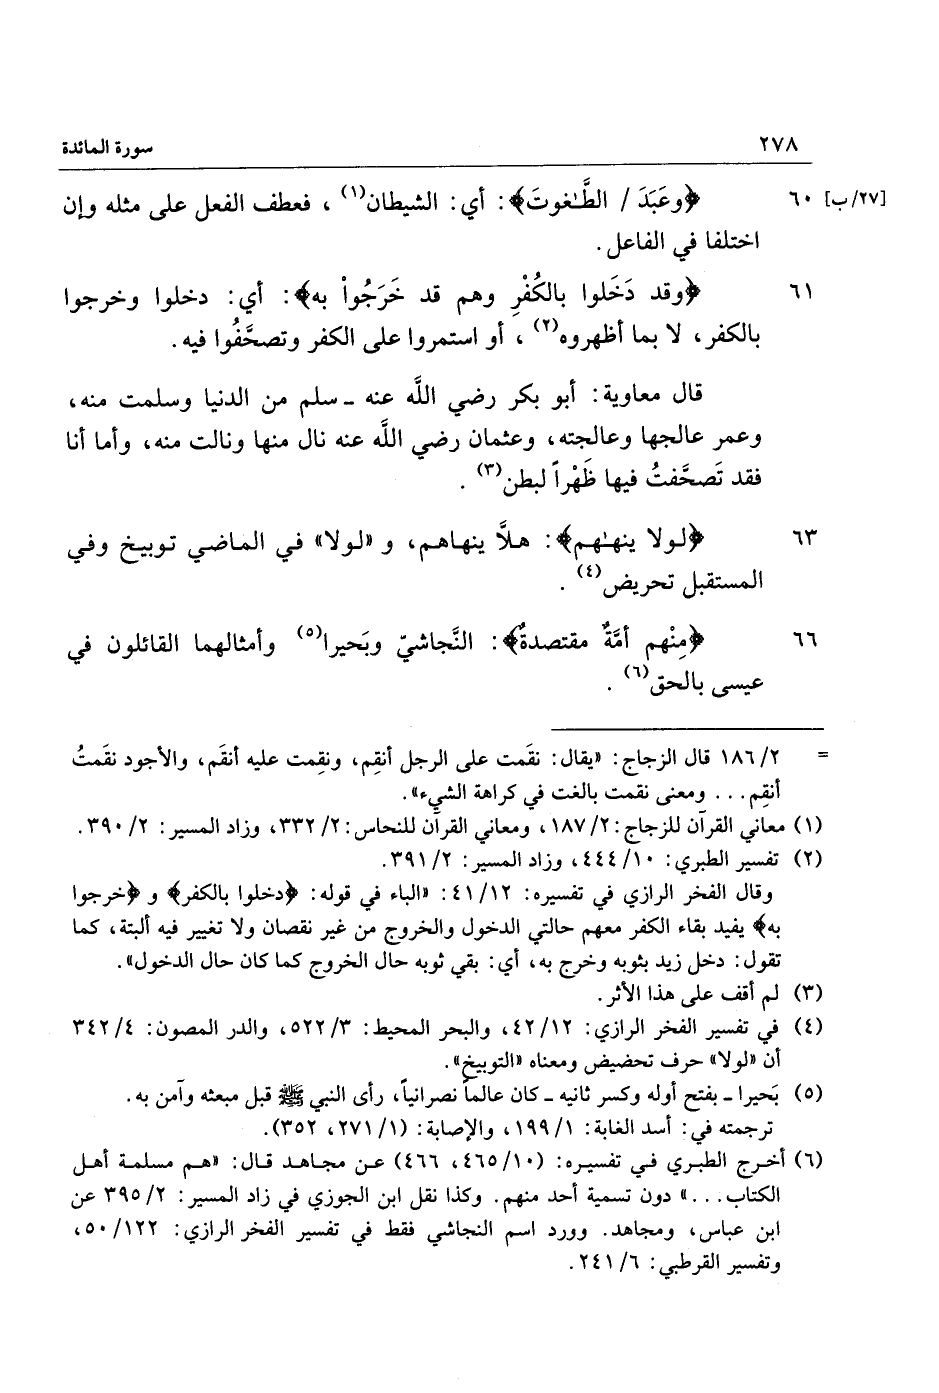 ٢٧٨ سورة المائدة
[٢٧/ب] ٦٠ ﴿وعَبَدَ / الطَّـٰغوتَ﴾: أي: الشيطان(١)، فعطف الفعل على مثله وإن
اختلفا في الفاعل.
٦١ ﴿وقد دَخَلوا بالكُفْرِ وهم قد خَرَجُواْ به﴾: أي: دخلوا وخرجوا
بالكفر، لا بما أظهروه(٢)، أو استمروا على الكفر وتصحَّفُوا فيه.
قال معاوية: أبو بكر رضي اللَّه عنه ـ سلم من الدنيا وسلمت منه،
وعمر عالجها وعالجته، وعثمان رضي اللَّه عنه نال منها ونالت منه، وأما أنا
فقد تَصحَّفتُ فيها ظَهْراً لبطن(٣).
٦٣ ﴿لولا ينهـٰهم﴾: هلاَّ ينهاهم، و «لولا» في الماضي توبيخ وفي
المستقبل تحريض(٤).
٦٦ ﴿مِنْهم أمَّةٌ مقتصدةٌ﴾: النَّجاشيّ وبَحيرا(٥) وأمثالهما القائلون في
عيسى بالحق(٦).
= ١٨٦/٢ قال الزجاج: «يقال: نقَمت على الرجل أنقِم، ونقِمت عليه أنقَم، والأجود نقَمتُ
أنقِم... ومعنى نقمت بالغت في كراهة الشيء».
(١) معاني القرآن للزجاج: ١٨٧/٢، ومعاني القرآن للنحاس: ٣٣٢/٢، وزاد المسير: ٣٩٠/٢.
(٢) تفسير الطبري: ٤٤٤/١٠، وزاد المسير: ٣٩١/٢.
وقال الفخر الرازي في تفسيره: ٤١/١٢: «الباء في قوله: ﴿دخلوا بالكفر﴾ و ﴿خرجوا
به﴾ يفيد بقاء الكفر معهم حالتي الدخول والخروج من غير نقصان ولا تغيير فيه ألبتة، كما
تقول: دخل زيد بثوبه وخرج به، أي: بقي ثوبه حال الخروج كما كان حال الدخول».
(٣) لم أقف على هذا الأثر.
(٤) في تفسير الفخر الرازي: ٤٢/١٢، والبحر المحيط: ٥٢٢/٣، والدر المصون: ٣٤٢/٤
أن «لولا» حرف تحضيض ومعناه «التوبيخ».
(٥) بَحيرا ـ بفتح أوله وكسر ثانيه ـ كان عالماً نصرانياً، رأى النبي ﷺ قبل مبعثه وآمن به.
ترجمته في: أسد الغابة: ١٩٩/١، والإصابة: (٢٧١/١، ٣٥٢).
(٦) أخرج الطبري في تفسيره: (٤٦٥/١٠، ٤٦٦) عن مجاهد قال: «هم مسلمة أهل
الكتاب...» دون تسمية أحد منهم. وكذا نقل ابن الجوزي في زاد المسير: ٣٩٥/٢ عن
ابن عباس، ومجاهد. وورد اسم النجاشي فقط في تفسير الفخر الرازي: ٥٠/١٢٢،
وتفسير القرطبي: ٢٤١/٦.